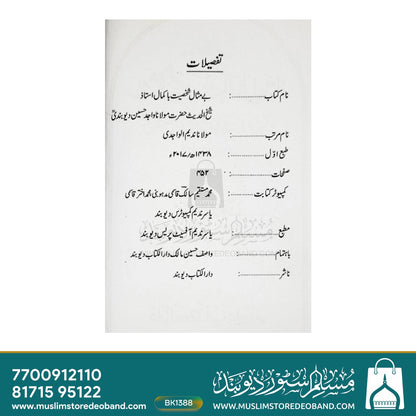 تفصیلات
نام کتاب ............: بے مثال شخصیت باکمال استاذ
شیخ الحدیث حضرت مولانا واجد حسین دیوبندیؒ
نام مرتب ............: مولانا ندیم الواجدی
طبع اوّل ............: ۱۴۳۸ھ/۲۰۱۷ء
صفحات ............: ۴۵۲
کمپیوٹر کتابت ............: محمد مستقیم سالک قاسمی مدہوبنی/محمد اختر قاسمی
یاسر ندیم کمپیوٹرس دیوبند
مطبع ............: یاسر ندیم آفسیٹ پریس دیوبند
باہتمام ............: واصف حسین مالک دارالکتاب دیوبند
ناشر ............: دارالکتاب دیوبند
WWW.MUSLIMSTOREDEOBAND.COM
7700912110
81715 95122
www.muslimstoredeoband.com
BK1388
مسلم سٹور دیوبند
WWW.MUSLIMSTOREDEOBAND.COM